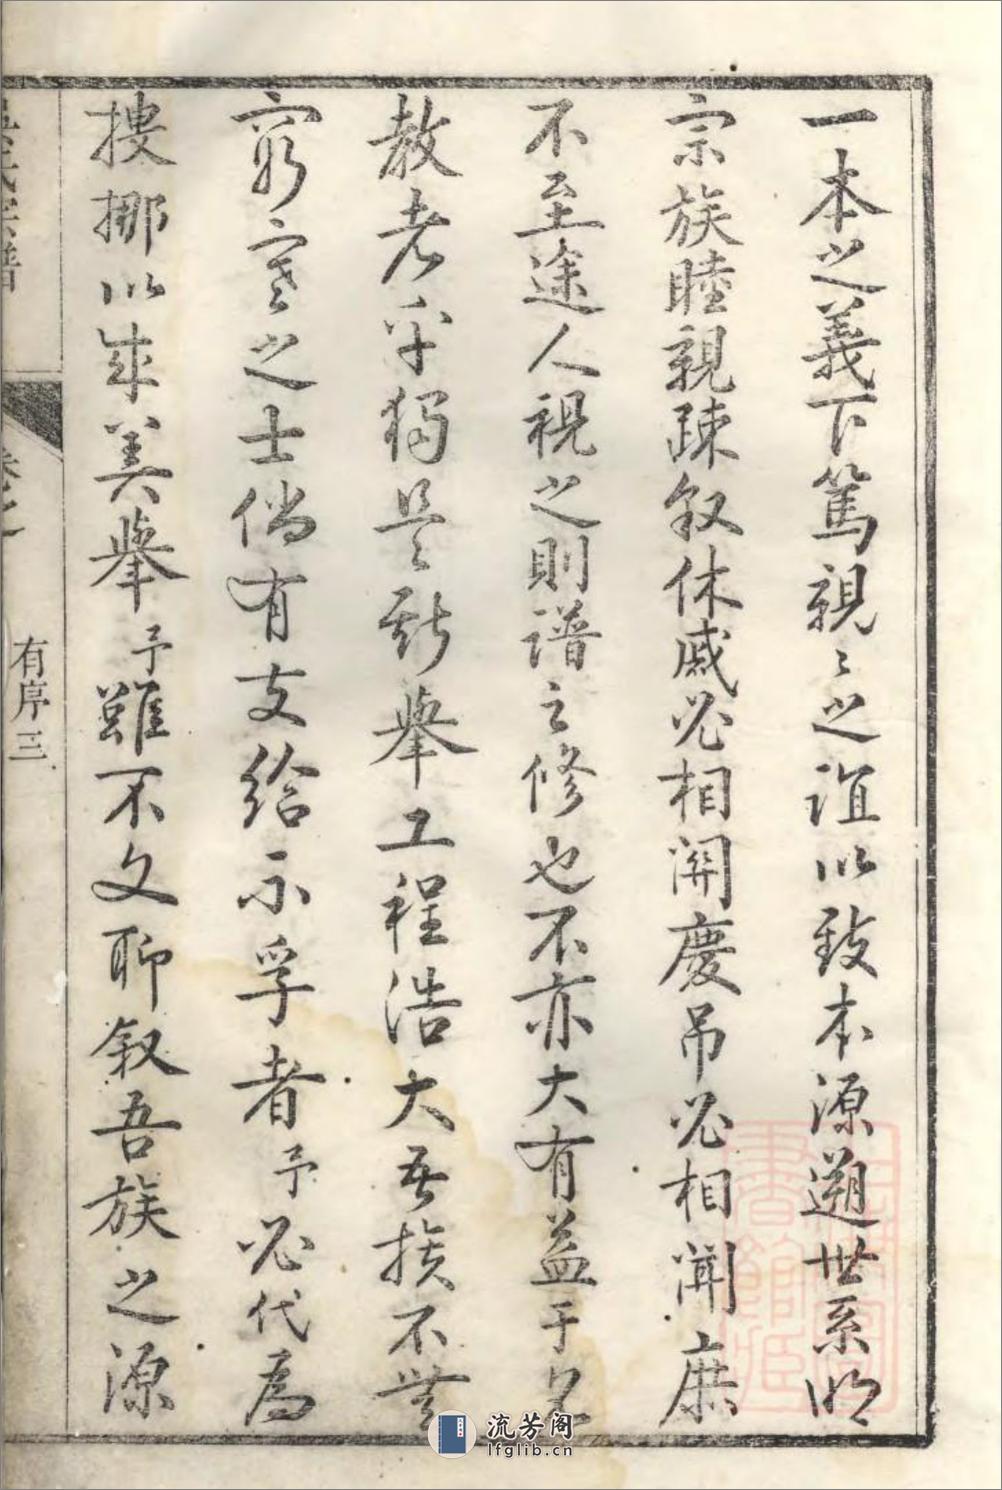 一本之義下篤親〻之誼以致本源遡世系明
宗族睦親疎叙休戚必相関慶吊必相聞庶
不至途人視之則譜之修也不亦大有益于名
教者乎獨是斯舉工程浩大吾族不無
窮寒之士倘有支給不孚者予必代為
摟挪以成美舉予雖不文聊叙吾族之源
氏宗譜
有序三
流芳阁
lfglib.cn